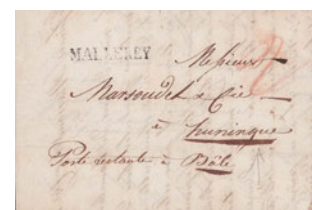 MALLEREY
Messieurs
Marsoudet & Cie
à Huningue
Poste restante à Bâle